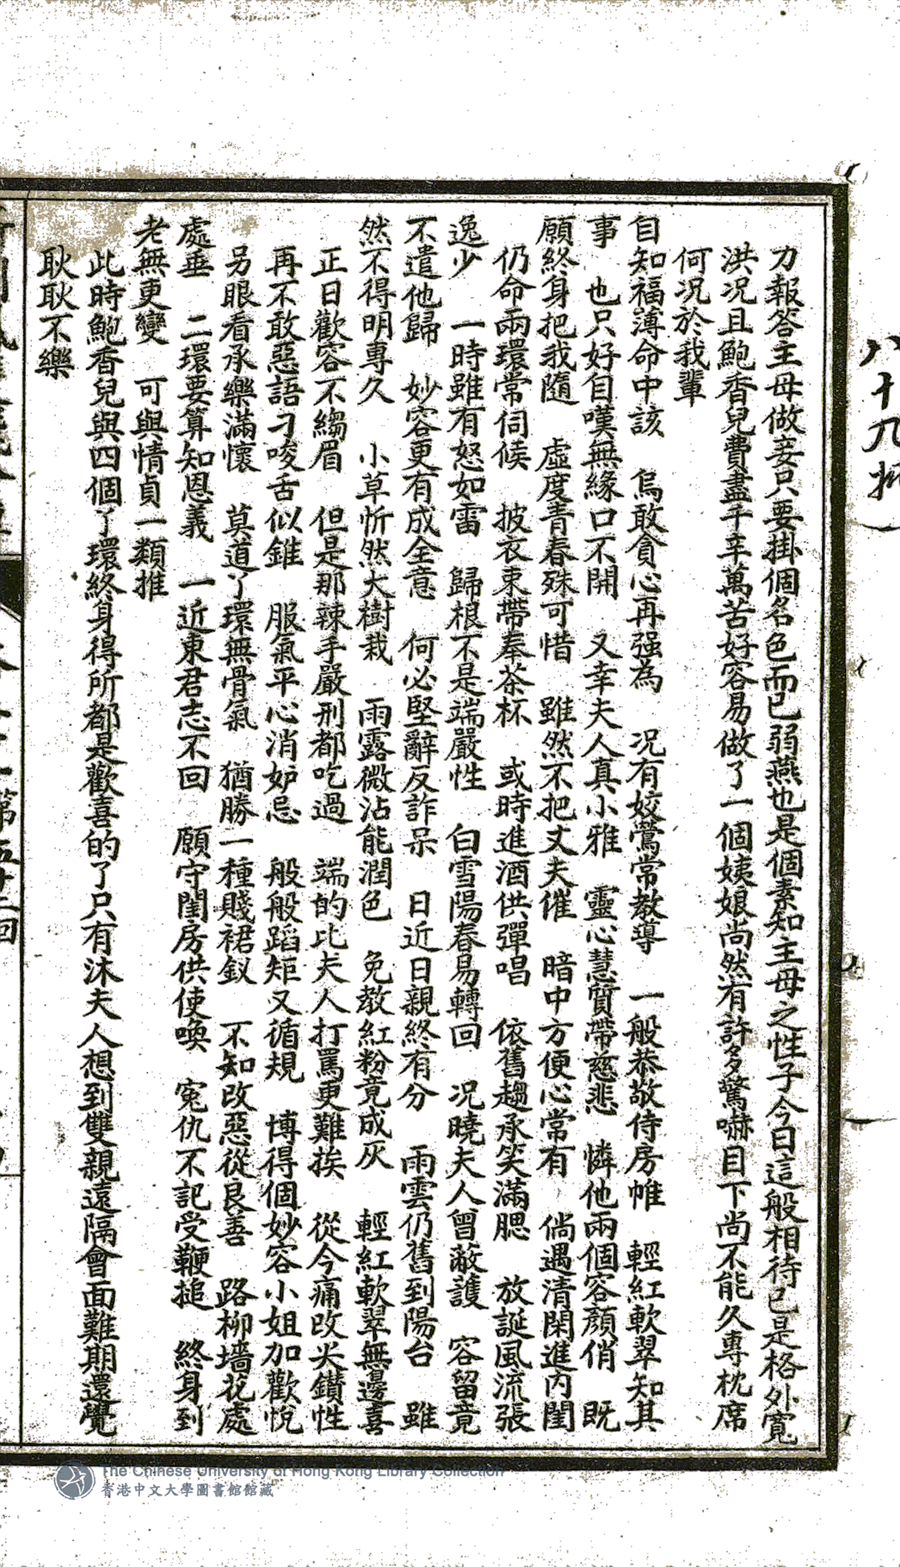 八十九折
力報答主母做妾只要掛個名色而已弱燕也是個素知主母之性子今日這般相待已是格外寬
洪况且鮑香兒費盡千辛萬苦好容易做了一個姨娘尚然有許多驚嚇目下尚不能久專枕席
何况於我輩
自知福薄命中該　焉敢貪心再强為　况有姣鶯常教導　一般恭敬侍房帷　輕紅軟翠知其
事　也只好自嘆無緣口不開　又幸夫人真小雅　靈心慧質帶慈悲　憐他兩個容顏俏　既
願終身把我隨　虛度青春殊可惜　雖然不把丈夫催　暗中方便心常有　倘遇清閑進內閨
仍命兩環常伺候　披衣束帶奉茶杯　或時進酒供彈唱　依舊趨承笑滿腮　放誕風流張
逸少　一時雖有怒如雷　歸根不是端嚴性　白雪陽春易轉回　况曉夫人曾蔽護　容留竟
不遣他歸　妙容更有成全意　何必堅辭反詐呆　日近日親終有分　雨雲仍舊到陽台　雖
然不得明專久　小草忻然大樹栽　雨露微沾能潤色　免教紅粉竟成灰　輕紅軟翠無邊喜
正日歡容不縐眉　但是那辣手嚴刑都吃過　端的比夫人打罵更難挨　從今痛改尖鑽性
再不敢惡語刁唆舌似錐　服氣平心消妒忌　般般蹈矩又循規　博得個妙容小姐加歡悅
另眼看承樂滿懷　莫道丫環無骨氣　猶勝一種賤裙釵　不知改惡從良善　路柳墻花處
處垂　二環要算知恩義　一近東君志不回　願守閨房供使喚　寃仇不記受鞭搥　終身到
老無更變　可與情貞一類推
此時鮑香兒與四個丫環終身得所都是歡喜的了只有沐夫人想到雙親遠隔會面難期還覺
耿耿不樂
第五十二回
The Chinese University of Hong Kong Library Collection
香港中文大學圖書館館藏